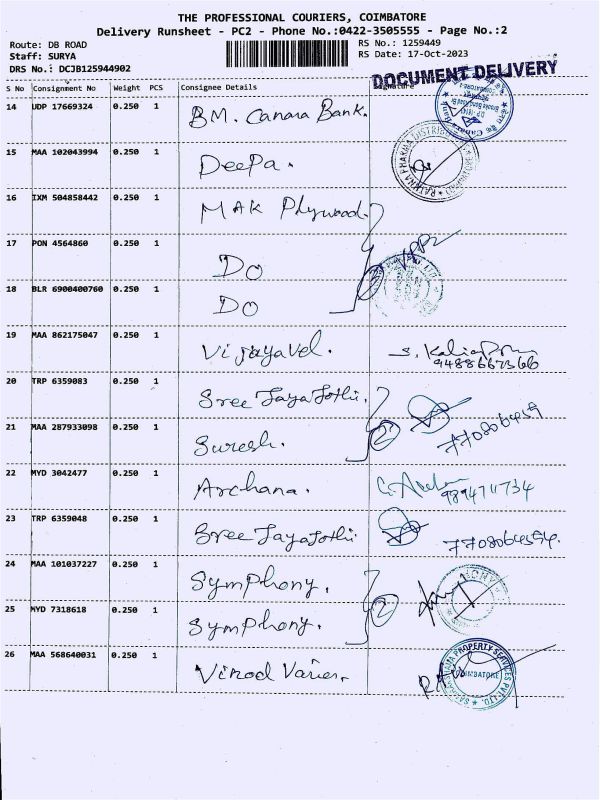 THE PROFESSIONAL COURIERS, COIMBATORE
Delivery Runsheet - PC2 - Phone No.:0422-3505555 - Page No.:2
Route: DB ROAD RS No.: 1259449
Staff: SURYA RS Date: 17-Oct-2023
DRS No.: DCJB125944902
DOCUMENT DELIVERY
S No Consignment No Weight PCS Consignee Details Signature
14 UDP 17669324 0.250 1 BM. Canara Bank.
15 MAA 102043994 0.250 1 Deepa.
16 IXM 504858442 0.250 1 MAK Plywood.
17 PON 4564860 0.250 1 Do
18 BLR 6900400760 0.250 1 Do
19 MAA 862175047 0.250 1 Vijayavel. S.
9488667366
20 TRP 6359083 0.250 1 Sree Jaya Jothi.
21 MAA 287933098 0.250 1 Suresh. 2
22 MYD 3042477 0.250 1 Archana.
9894711734
23 TRP 6359048 0.250 1 Sree Jaya Jothi
24 MAA 101037227 0.250 1 Symphony.
25 MYD 7318618 0.250 1 Symphony. 2
26 MAA 568640031 0.250 1 Vinod Varier.
PROPERTY SERVICES PVT. LTD.
COIMBATORE